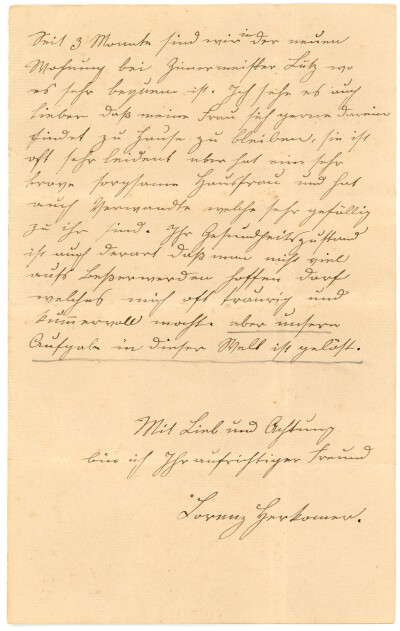 Seit 3 Monate sind wir in der neuen
Wohnung bei Zimermeister Lutz wo
es sehr bequem ist. Ich sehe es auch
lieber daß meine Frau sich gerne darein
findet zu Hause zu bleiben, sie ist
oft sehr leident aber hat eine sehr
brave sorgsame Hausfrau und hat
auch Verwandte welche sehr gefällig
zu ihr sind. Ihr Gesundheitszustand
ist auch derart daß man nicht viel
aufs Beßerwerden hoffen darf
welches mich oft traurig und
kummervoll macht. aber unsere
Aufgabe in dieser Welt ist gelöst.
Mit Lieb und Achtung
bin ich Ihr aufrichtiger Freund
Lorenz Herkomer.